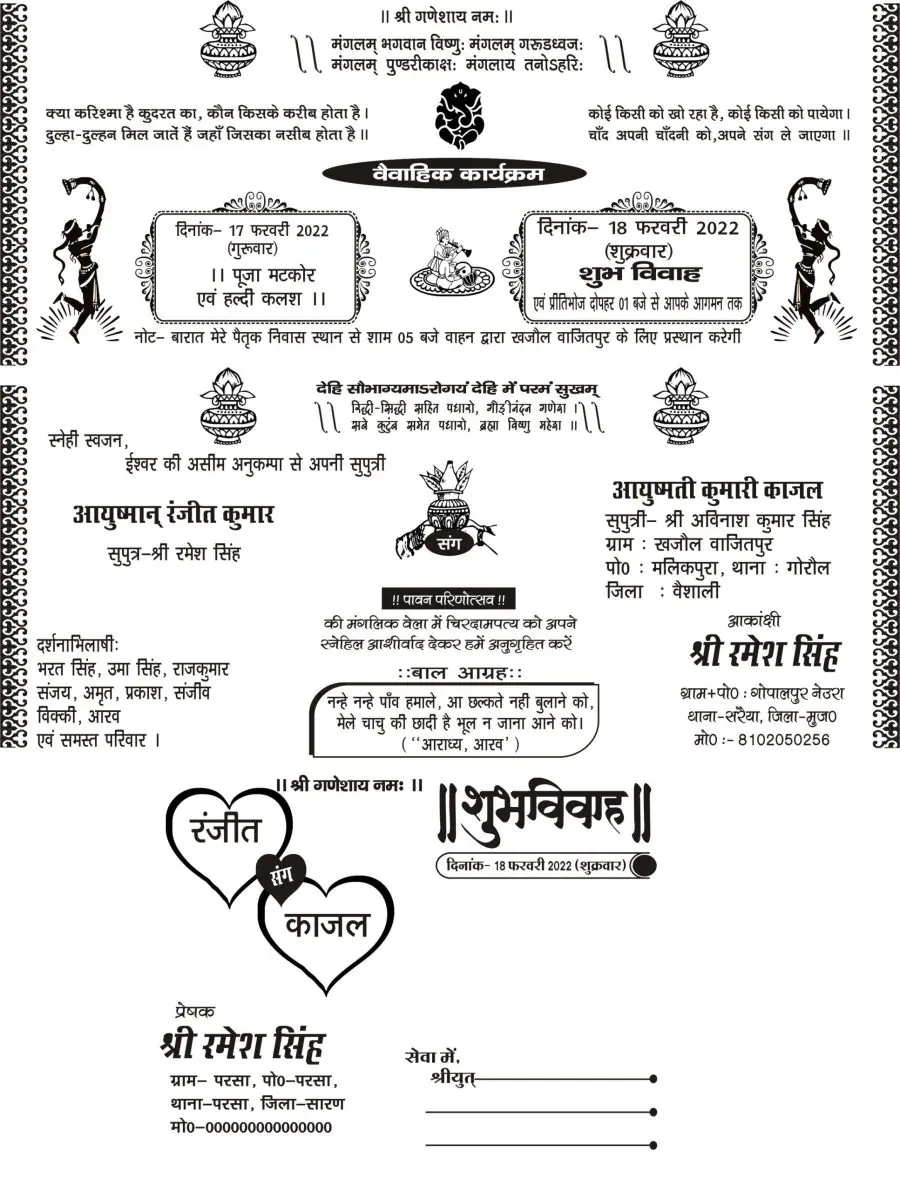 ॥ श्री गणेशाय नम: ॥
मंगलम् भगवान विष्णु: मंगलम् गरूडध्वज:
मंगलम् पुण्डरीकाक्ष: मंगलाय तनोऽहरि:
क्या करिश्मा है कुदरत का, कौन किसके करीब होता है।
दुल्हा-दुल्हन मिल जातें हैं जहाँ जिसका नसीब होता है॥
कोई किसी को खो रहा है, कोई किसी को पायेगा।
चाँद अपनी चाँदनी को,अपने संग ले जाएगा ॥
वैवाहिक कार्यक्रम
दिनांक- 17 फरवरी 2022
(गुरूवार)
।। पूजा मटकोर
एवं हल्दी कलश ।।
दिनांक- 18 फरवरी 2022
(शुक्रवार)
शुभ विवाह
एवं प्रीतिभोज दोपहर 01 बजे से आपके आगमन तक
नोट- बारात मेरे पैतृक निवास स्थान से शाम 05 बजे वाहन द्वारा खजौल वाजितपुर के लिए प्रस्थान करेगी
देहि सौभाग्यमाऽरोगयं देहि में परमं सुखम्
रिद्धी-सिद्धी सहित पधारो, गौड़ीनंदन गणेश ।
सबे कुटुंब समेत पधारो, ब्रह्मा विष्णु महेश ॥
स्नेही स्वजन,
ईश्वर की असीम अनुकम्पा से अपनी सुपुत्री
आयुष्मान् रंजीत कुमार
सुपुत्र-श्री रमेश सिंह
संग
आयुष्मती कुमारी काजल
सुपुत्री- श्री अविनाश कुमार सिंह
ग्राम : खजौल वाजितपुर
पो0 : मलिकपुरा, थाना : गोरौल
जिला : वैशाली
!! पावन परिणोत्सव !!
की मंगलिक वेला में चिरदामपत्य को अपने
स्नेहिल आशीर्वाद देकर हमें अनुगृहित करें
दर्शनाभिलाषीः
भरत सिंह, उमा सिंह, राजकुमार
संजय, अमृत, प्रकाश, संजीव
विक्की, आरव
एवं समस्त परिवार ।
::बाल आग्रह::
नन्हे नन्हे पाँव हमाले, आ छल्कते नही बुलाने को,
मेले चाचु की छादी है भूल न जाना आने को।
( ‘‘आराध्य, आरव’ )
आकांक्षी
श्री रमेश सिंह
ग्राम+पो0 : गोपालपुर नेउरा
थाना-सरैया, जिला-मुज0
मो0 :- 8102050256
।। श्री गणेशाय नमः ।।
रंजीत
संग
काजल
॥शुभविवाह॥
दिनांक- 18 फरवरी 2022 (शुक्रवार)
प्रेषक
श्री रमेश सिंह
ग्राम- परसा, पो0-परसा,
थाना-परसा, जिला-सारण
मो0-000000000000000
सेवा में,
श्रीयुत्